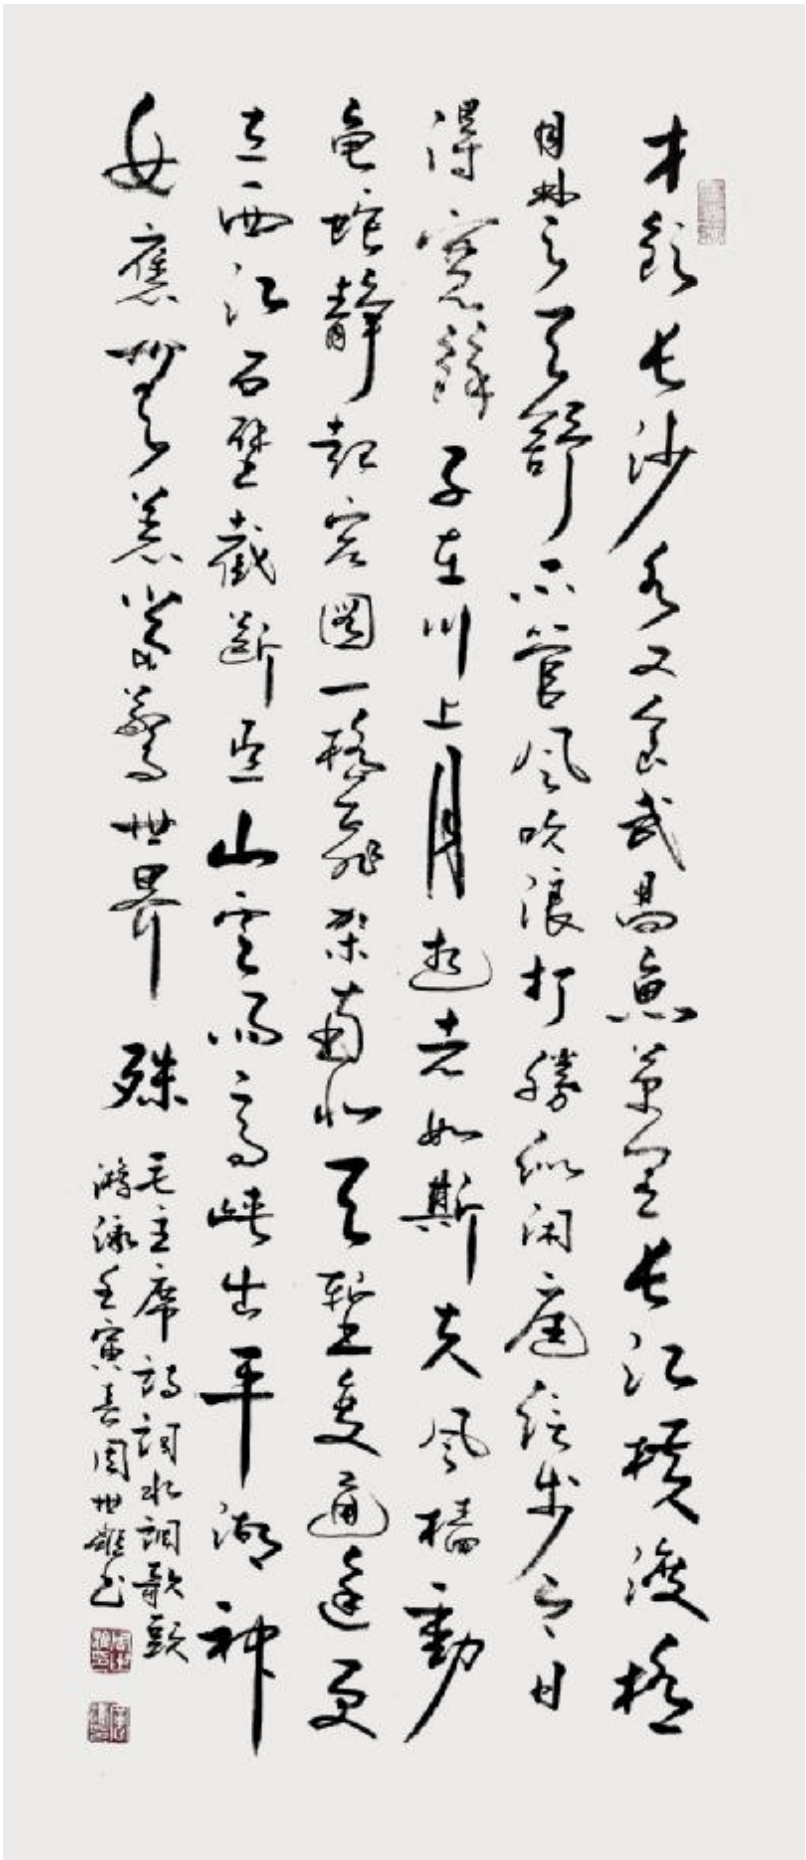 才飲长沙水又食武昌魚萬里长江横渡極
目楚天舒不管风吹浪打勝似闲庭信步今日
得寬餘子在川上曰逝者如斯夫风樯動
龟蛇静起宏圖一橋飛架南北天塹變通途更
立西江石壁截斷巫山雲雨高峡出平湖神
女應無恙當驚世界殊
毛主席詩詞水調歌頭
游泳壬寅春周世雄书